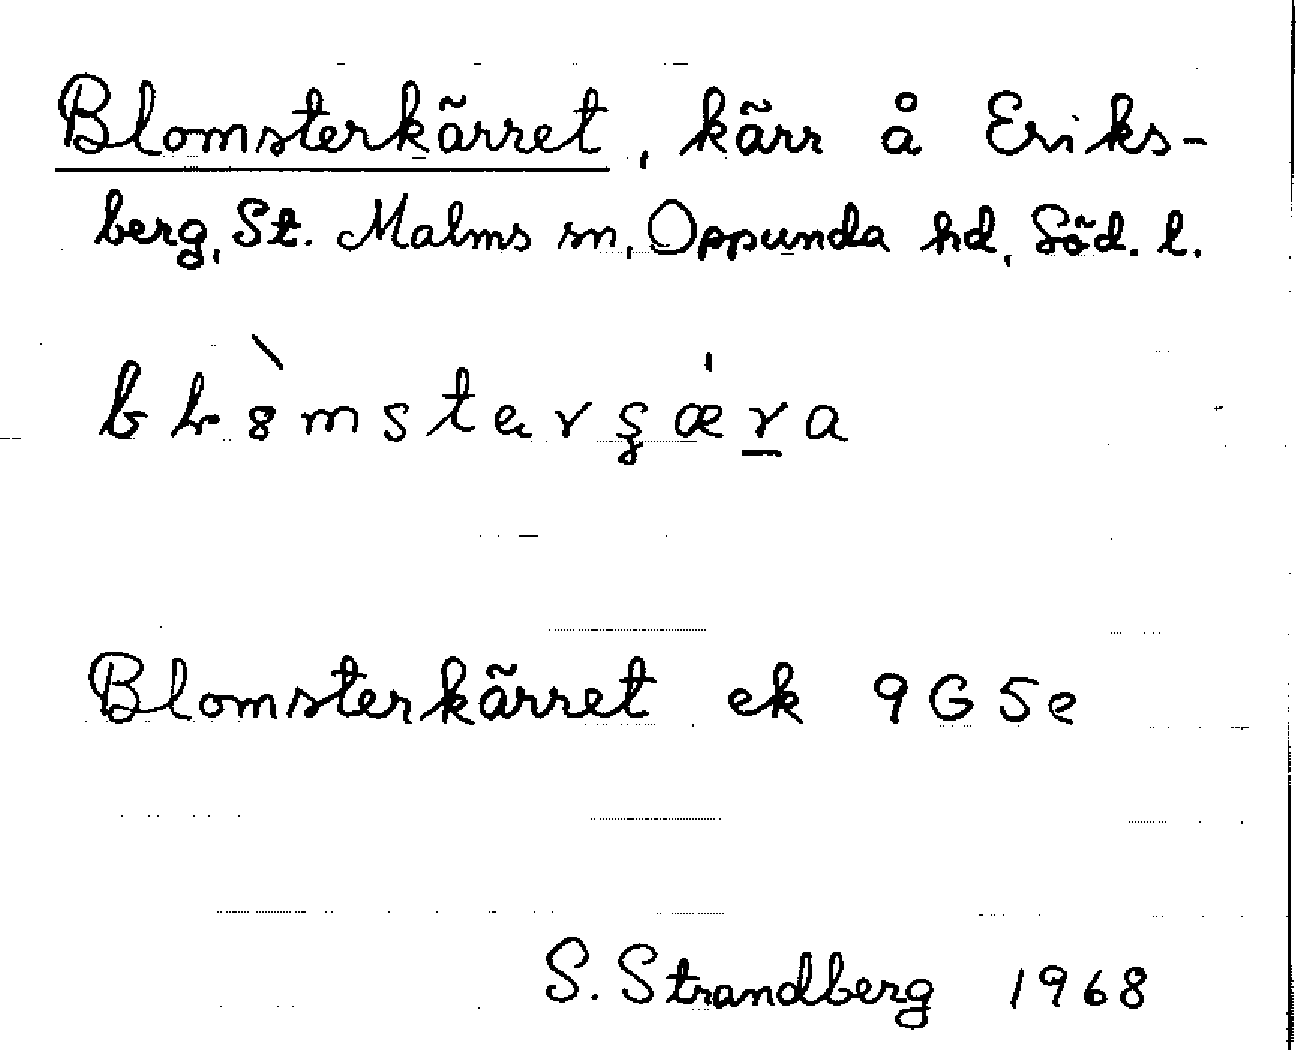 Blomsterkärret, kärr å Eriks-
berg, St. Malms sn, Oppunda hd, Söd. l.
Blomsterkärret ek 9G5e
S. Strandberg 1968